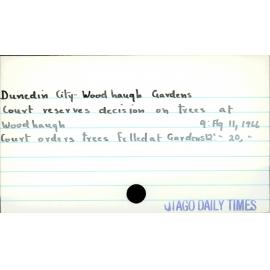 Dunedin City - Woodhaugh Gardens
Court reserves decision on trees at
Woodhaugh 9: Ag 11, 1966
Court orders trees felled at Gardens 12: - 20, -
OTAGO DAILY TIMES